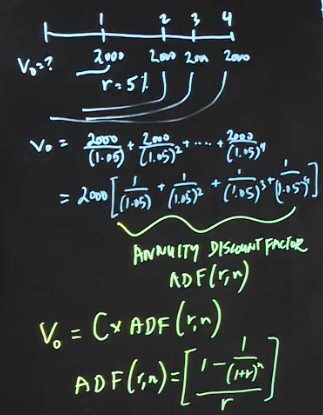 1 2 3 4
V₀=? 2000 2000 2000 2000
r = 5%
V₀ = 2000/(1.05) + 2000/(1.05)² + .... + 2000/(1.05)⁴
= 2000 [ 1/(1.05) + 1/(1.05)² + 1/(1.05)³ + 1/(1.05)⁴ ]
ANNUITY DISCOUNT FACTOR
ADF(r,n)
V₀ = C x ADF(r,n)
ADF(r,n) = [ 1 - 1/(1+r)ⁿ / r ]